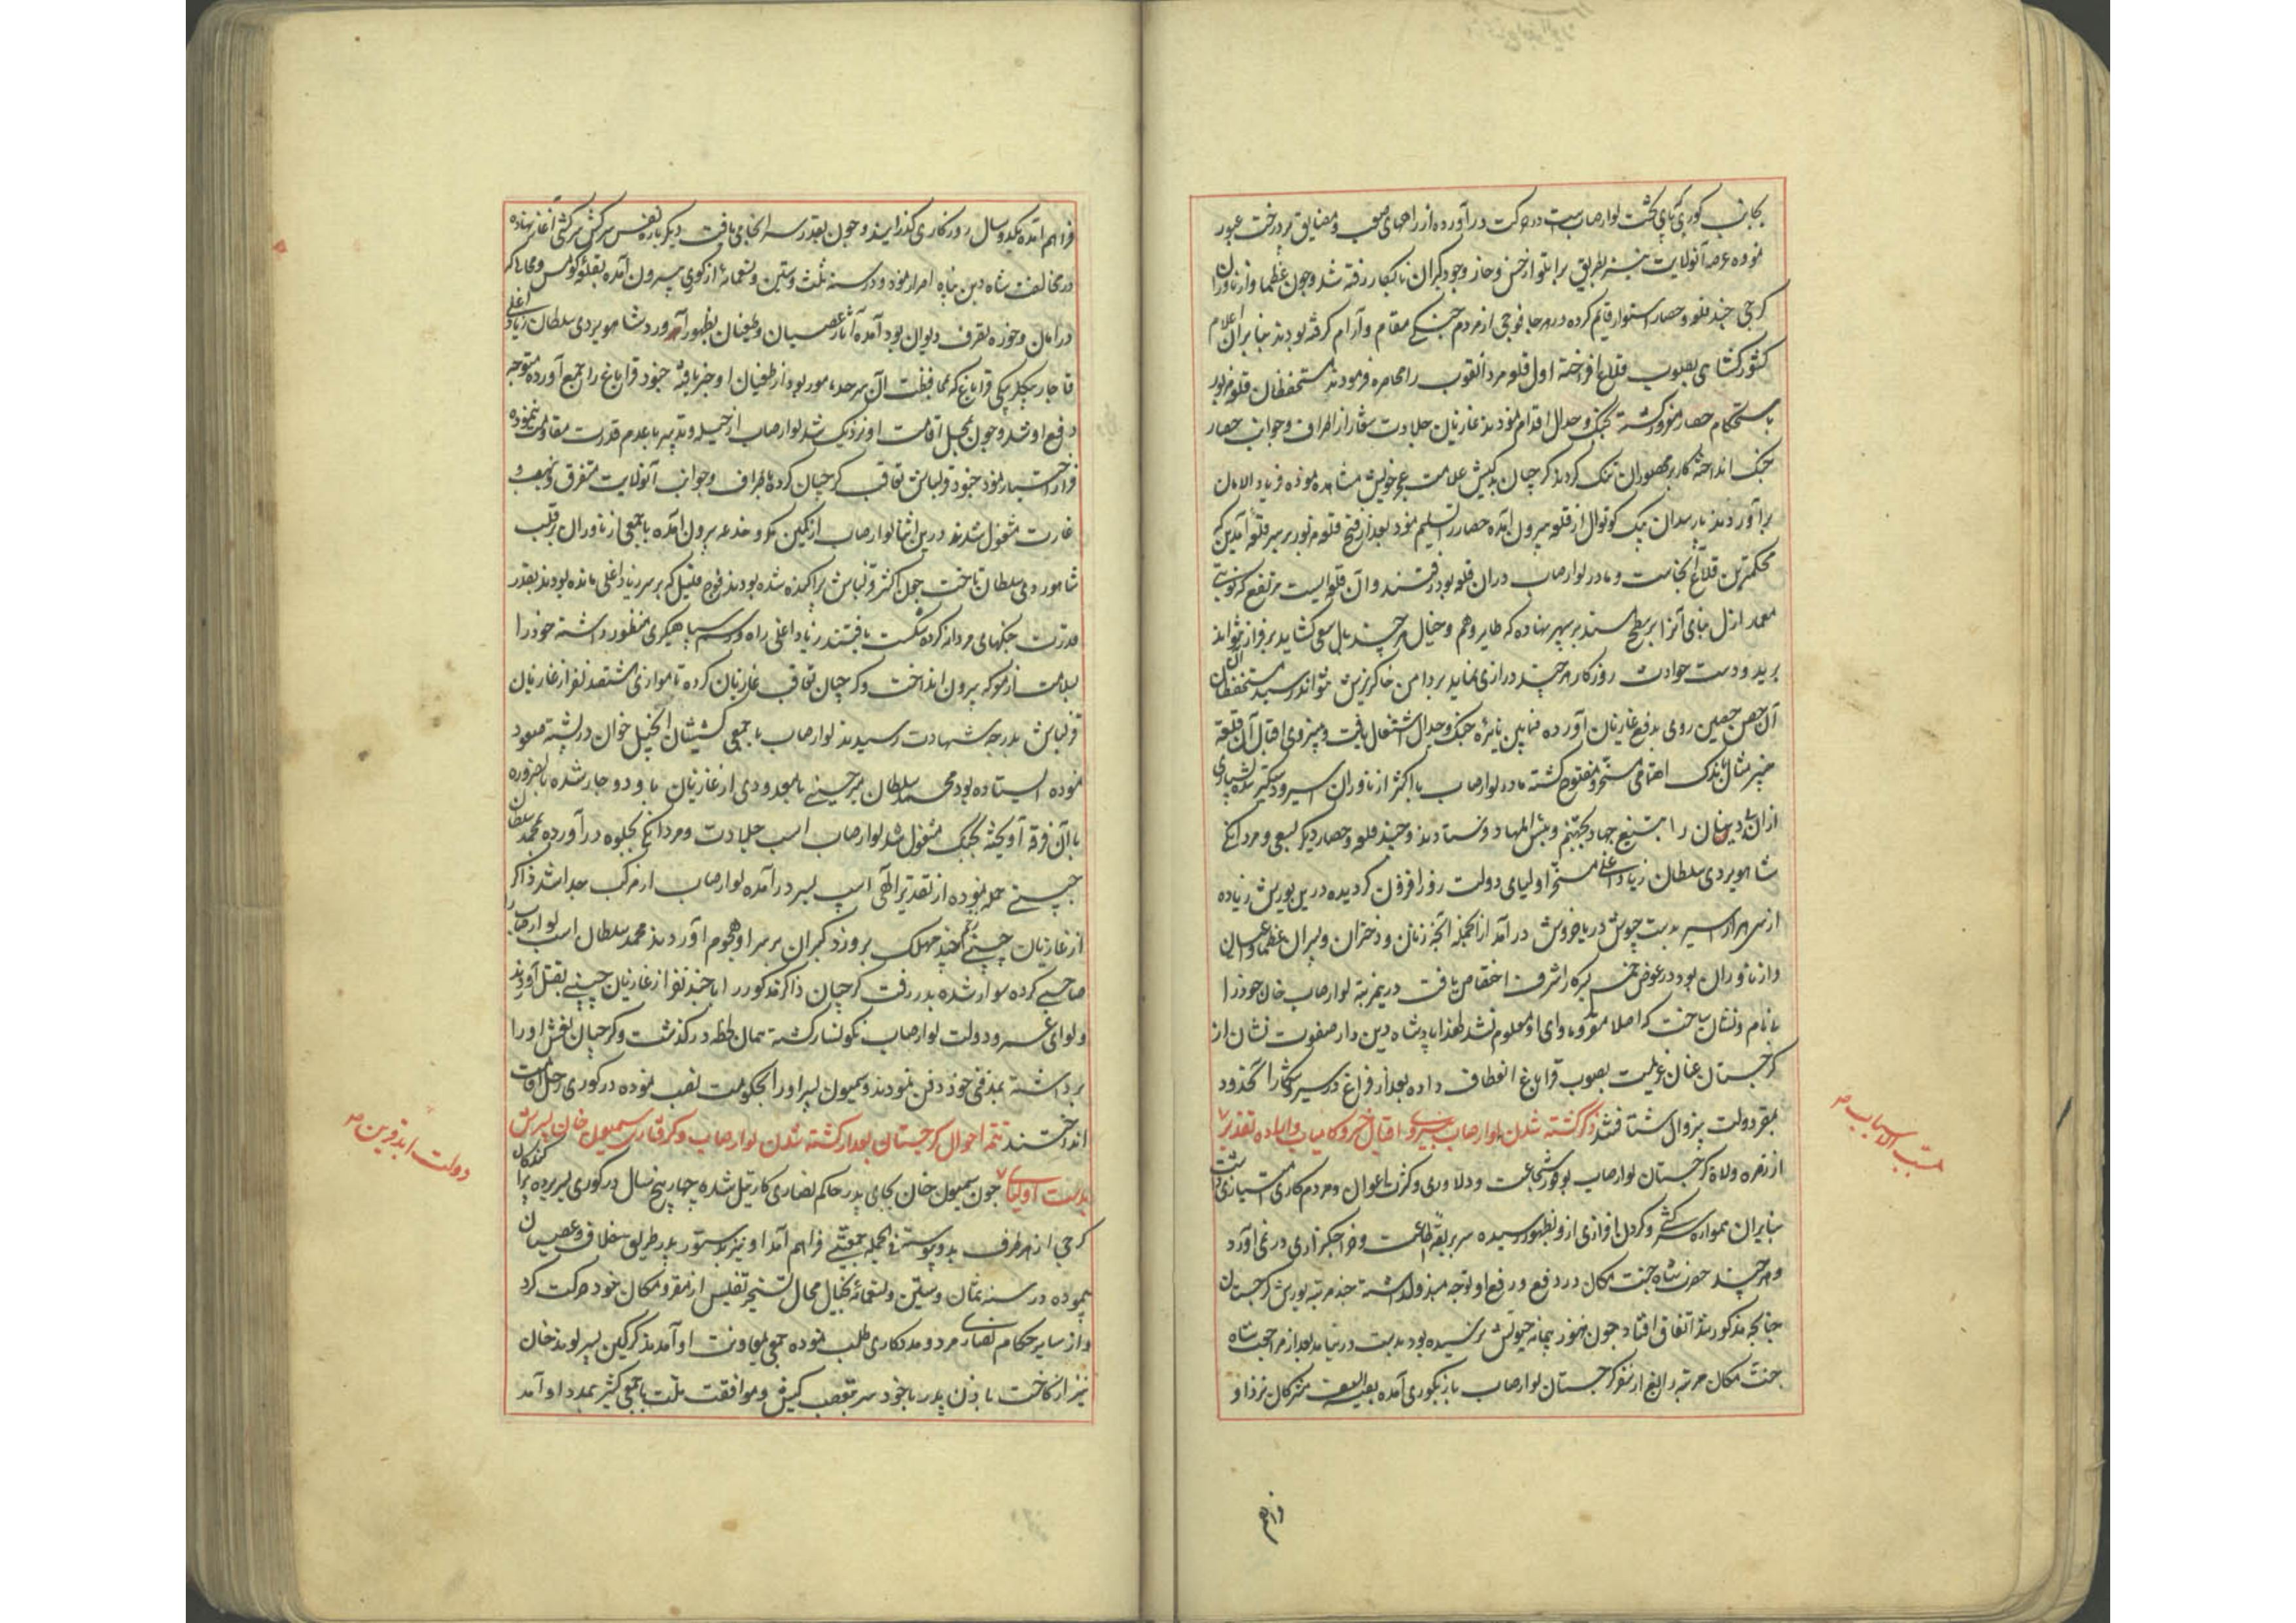 بجانب کوری آیای تخت لوارصاب است در حرکت در آورده از راههای صعب و مضایق پر درخت عبور
نموده عرصه آنولایت نیز بطریق براتلو از خس و خار وجود گبران نابکار رفته شد و چون عظما و ازناوران
گرجی چند قلعه و حصار استوار قایم کرده در هر جا فوجی از مردم جنگی مقام و آرام گرفته بودند بنابران اعلام
کشورکشای بصوب قلاع افراخته اول قلعه مردانقوب را محاصره فرمودند مستحفظان قلعه مزبور
باستحکام حصار مغرور گشته بجنگ و جدال اقدام نمودند غازیان جلادت شعار از اطراف و جوانب حصار
جنگ انداخته کار بر محصوران تنگ کردند گرجیان بدکیش علامت عجز خویش مشاهده نموده فریاد الامان
برآوردند پارسدان بیک کوتوال از قلعه بیرون آمده حصار را تسلیم نمود بعد از فتح قلعه مزبور بر سر قلعه آیدین که
محکمترین قلاع آنجاست و مادر لوارصاب دران قلعه بود رفتند و آن قلعه ایست مرتفع که گویی
معمار ازل بنای آنرا بر سطح سپهر نهاده که طایر وهم و خیال هر چند بال سعی گشاید بر فراز نتواند
پرید و دست حوادث روزگار هر چند درازی نماید بر دامن خاکریزش نتواند رسید مستحفظان
آن حصن حصین روی بدفع غازیان آورده فیمابین نائره جنگ و جدال اشتعال یافت و بنیروی اقبال آن قلعه
خیبر مثال باندک اهتمامی مسخر و مفتوح گشته مادر لوارصاب با اکثر ازناوران اسیر و دستگیر شده بسیاری
ازان بیدینان را به تیغ جهاد بجهنم و بئس المهاد فرستادند و چند قلعه و حصار دیگر بسعی و مردانگی
شاهویردی سلطان زیاد اغلی مسخر اولیای دولت روز افزون گردیده درین یورش زیاده
از سی هزار اسیر بدست جیوش دریا خروش در آمد از آنجمله آنچه زنان و دختران و پسران عظما و اعیان
و ازناوران بود در عوض خمس بسرکار اشرف اختصاص یافت درینمرتبه لوارصاب خان خود را
بانام و نشان ساخت که اصلا مقر و ماوای او معلوم نشد لهذا پادشاه دین دار صفوت نشان از
گرجستان عنان عزیمت بصوب قراباغ انعطاف داده بعد از فراغ در سیر و شکار آنحدود
بمقر دولت بیزوال شتافتند ذکر کشته شدن لوارصاب بنیروی اقبال خسرو کامیاب و اراده تقدیر
مسبب الاسباب
از زمره ولاة گرجستان لوارصاب بوفور شجاعت و دلاوری و کثرت اعوان و مردم کاری امتیازی داشت
بنابران همواره سرکشی و گردن افرازی ازو بظهور رسیده سر بربقه اطاعت و خراجگزاری در نمی آورد
و هر چند حضرت شاه جنت مکان در دفع و رفع او توجه مبذول داشته چند مرتبه یورش گرجستان
چنانچه مذکور شد اتفاق افتاد چون هنوز پیمانه حیوتش پر نشده بود بدست درنیامد بعد از مراجعت شاه
جنت مکان مرتبه رابع از سفر گرجستان لوارصاب باز بکوری آمده بقیة السیف مشرکان نزد او
فراهم
فراهم آمده یکدو سال روزگاری گذرانیدند و چون بقدر سرانجامی یافت دیگر باره نفس سرکش سرکشی آغاز نهاده
در مخالفت شاه دین پناه اصرار نمود و در سنه ثلث و ستین و تسعمائه از کوری بیرون آمده بقلعه کومس و محالی که
در امان و حوزه تصرف دیوان بود آمده آثار عصیان و طغیان بظهور آورد شاهویردی سلطان زیاد اغلی
قاجار بیگلربیگی قراباغ که بمحافظت آن سرحد مامور بود از طغیان او خبر یافته جنود قراباغ را جمع آورده متوجه
دفع او شد و چون بمحل اقامت او نزدیک شد لوارصاب از حیله و تدبیر با عدم قدرت مقاومت ننموده
فرار اختیار نمود جنود قزلباش تعاقب گرجیان کرده باطراف و جوانب آنولایت متفرق و بنهب و
غارت مشغول شدند درین اثنا لوارصاب از کمین مکر و خدعه بیرون آمده با جمعی ازناوران بر قلب
شاهویردی سلطان تاخت چون اکثر قزلباش پراکنده شده بودند فوج قلیل که بر سر زیاد اغلی مانده بودند بقدر
قدرت جنگهای مردانه کرده شکست یافتند زیاد اغلی راه و رسم سپاهیگری منظور داشته خود را
بسلامت از معرکه بیرون انداخت و گرجیان تعاقب غازیان کرده تا موازی ششصد نفر از غازیان
قزلباش بدرجه شهادت رسیدند لوارصاب با جمعی کشیشان انجیل خوان در پشته صعود
نموده ایستاده بود محمد سلطان میر چینی با معدودی از غازیان باو دوچار شده بالضروره
با آن فرقه آویخته بجنگ مشغول شد لوارصاب اسب جلادت و مردانگی بجلوه در آورده بمحمد سلطان
چینی حمله نموده از تقدیر الهی اسب بسر در آمده لوارصاب از مرکب جدا شد ذاکر
از غازیان چینی زخم چند مهلک برو زد گبران بر سر او هجوم آوردند محمد سلطان اسب لوارصاب را
صاحبی کرده سوار شده بدر رفت گرجیان ذاکر مذکور را با چند نفر از غازیان چینی بقتل آوردند
و لوای عمر و دولت لوارصاب نگونسار گشته همان لحظه درگذشت و گرجیان نعش او را
برداشته بمدفن خود دفن نمودند و سمیون پسر او را بحکومت نصب نموده در کوری رحل اقامت
انداختند تتمه احوال گرجستان بعد از کشته شدن لوارصاب و گرفتاری سمیون خان پسرش
بدست اولیای دولت ابد قرین چون سمیون خان بجای پدر حاکم نصاری کارتیل شده چهار پنج سال در کوری بسر برده گبران
گرجی از هر طرف بدو پیوسته فی الجمله جمعیتی فراهم آمد او نیز بدستور پدر طریق خلاف و عصیان
پیموده در سنه ثمان و ستین و تسعمائه بخیال محال تسخیر تفلیس از مقر و مکان خود حرکت کرد
و از سایر حکام نصاری مرد و مددکاری طلب نموده جمعی بمعاونت او آمدند گرگین پسر لوند خان
نیز از کاخت با اذن پدر یا خود سر بتعصب کیش و موافقت ملت با جمعی کثیر بمدد او آمد